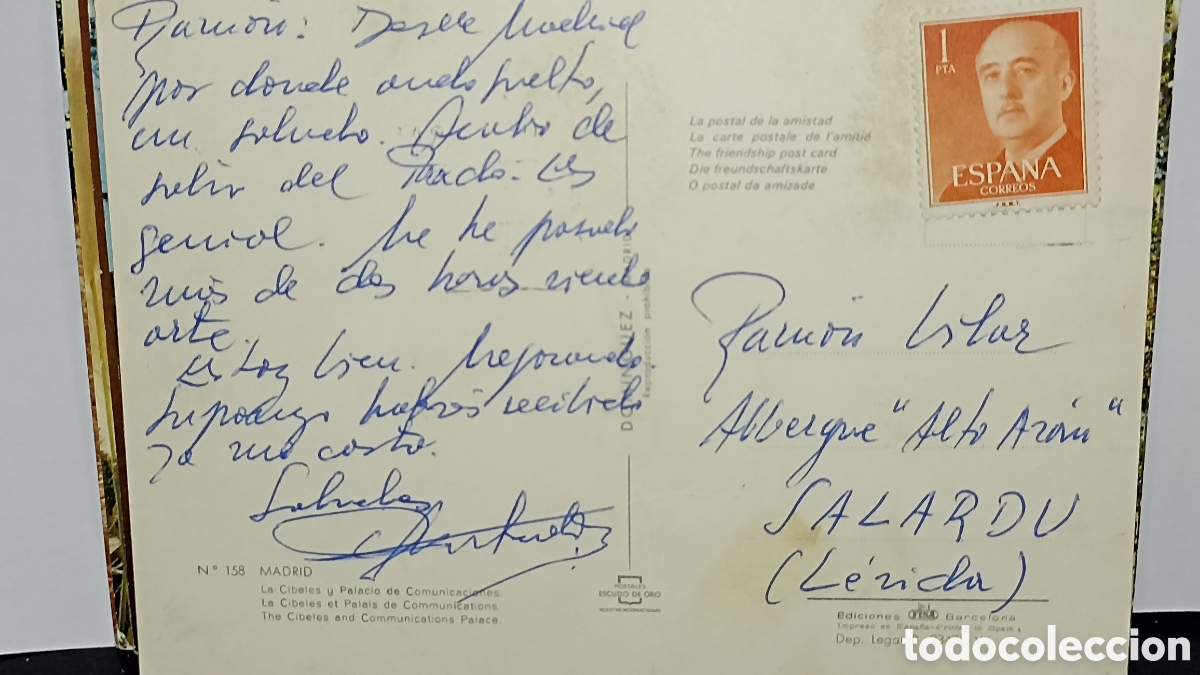 Ramón: Desde Madrid
por donde ando suelto,
un saludo. Acabo de
salir del Prado. Es
genial. Me he pasado
más de dos horas viendo
arte.
Estoy bien. Mejorando
Supongo habrás recibido
ya mi carta.
Saludos
Nº 158 MADRID
La Cibeles y Palacio de Comunicaciones.
La Cibeles et Palais de Communications.
The Cibeles and Communications Palace.
POSTALES
ESCUDO DE ORO
DOMINGUEZ - MADRID
Reproducción prohibida
La postal de la amistad
La carte postale de l'amitié
The friendship post card
Die freundschaftskarte
O postal da amizade
1
PTA
ESPAÑA
CORREOS
Ramón Vilar
Albergue "Alto Arán"
SALARDU
(Lérida)
Ediciones FISA Barcelona
Impreso en España-Printed in Spain
Dep. Legal
todocoleccion